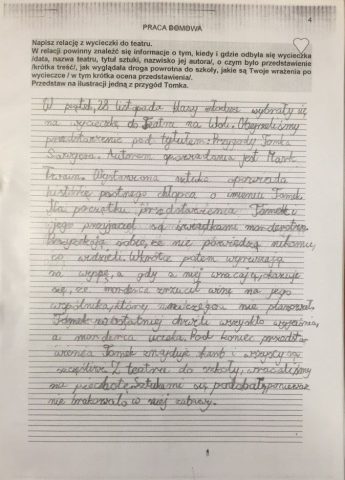 4
PRACA DOMOWA
Napisz relację z wycieczki do teatru.
W relacji powinny znaleźć się informacje o tym, kiedy i gdzie odbyła się wycieczka
/data, nazwa teatru, tytuł sztuki, nazwisko jej autora/, o czym było przedstawienie
/krótka treść/, jak wyglądała droga powrotna do szkoły, jakie są Twoje wrażenia po
wycieczce / w tym krótka ocena przedstawienia/.
Przedstaw na ilustracji jedną z przygód Tomka.
W piątek, 28 listopada klasy młodsze wybrały się
na wycieczkę do Teatru na Woli. Obejrzeliśmy
przedstawienie pod tytułem: Przygody Tomka
Sawyera. Autorem opowiadania jest Mark
Twain. Wystawiona sztuka opowiada
historię psotnego chłopca o imieniu Tomek.
Na początku przedstawienia Tomek i
jego przyjaciel są świadkami morderstwa.
Przysięgają sobie, że nie powiedzą nikomu,
co widzieli. Wkrótce potem wyruszają
na wyspę, a gdy z niej wracają, okazuje
się, że morderca zrzucił winę na jego
wspólnika, który niczego nie planował.
Tomek w ostatniej chwili wszystko wyjaśnia,
a morderca ucieka. Pod koniec przedsta-
wienia Tomek znajduje skarb i wszyscy są
szczęśliwi. Z teatru do szkoły, wracaliśmy
na piechotę. Sztuka mi się podobała, ponieważ
nie brakowało w niej zabawy.